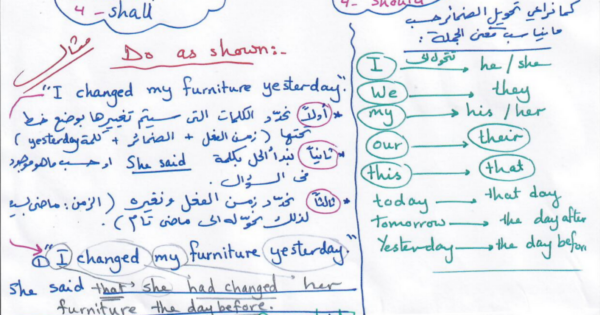 4 - shall
4 - should
مثال
Do as shown:-
"I changed my furniture yesterday."
* أولاً نحدد الكلمات التى سيتم تغييرها بوضع خط
تحتها ( زمن الفعل + الضمائر + كلمة yesterday )
* ثانياً نبدأ الحل بكلمة She said او حسب ما هو موجود
فى السؤال.
* ثالثاً نحدد زمن الفعل ونغيره ( الزمن: ماضى بسيط
لذلك نحوله إلى ماضى تام ).
① "I changed my furniture yesterday."
She said that she had changed her
furniture the day before.
كما نراعي تحويل الضمائر حسب
ما يناسب معنى الجملة :
تتحول إلى
I → he / she
We → they
my → his / her
our → their
this → that
today → that day
tomorrow → the day after
Yesterday → the day before